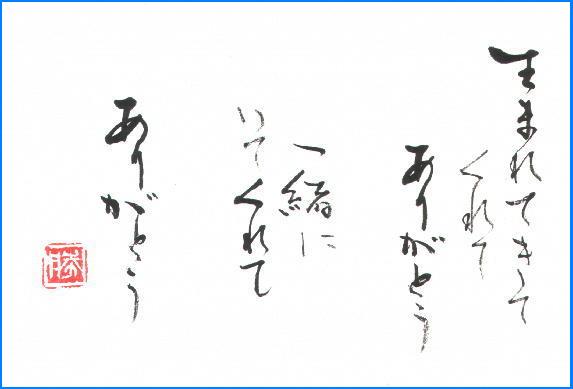 生まれてきて
くれて
ありがとう
一緒に
いてくれて
ありがとう
勝